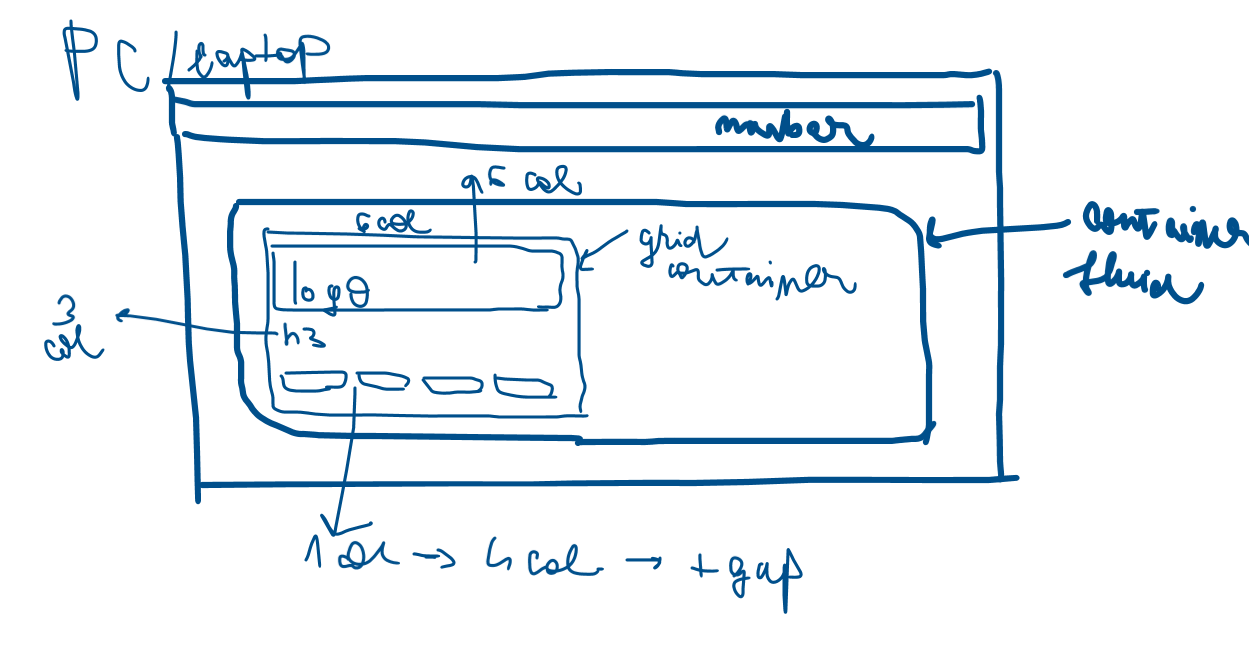 PC/laptop
navbar
95 col
6 col
grid
container
container
fluid
logo
3
col
h3
1 col → 4 col → + gap